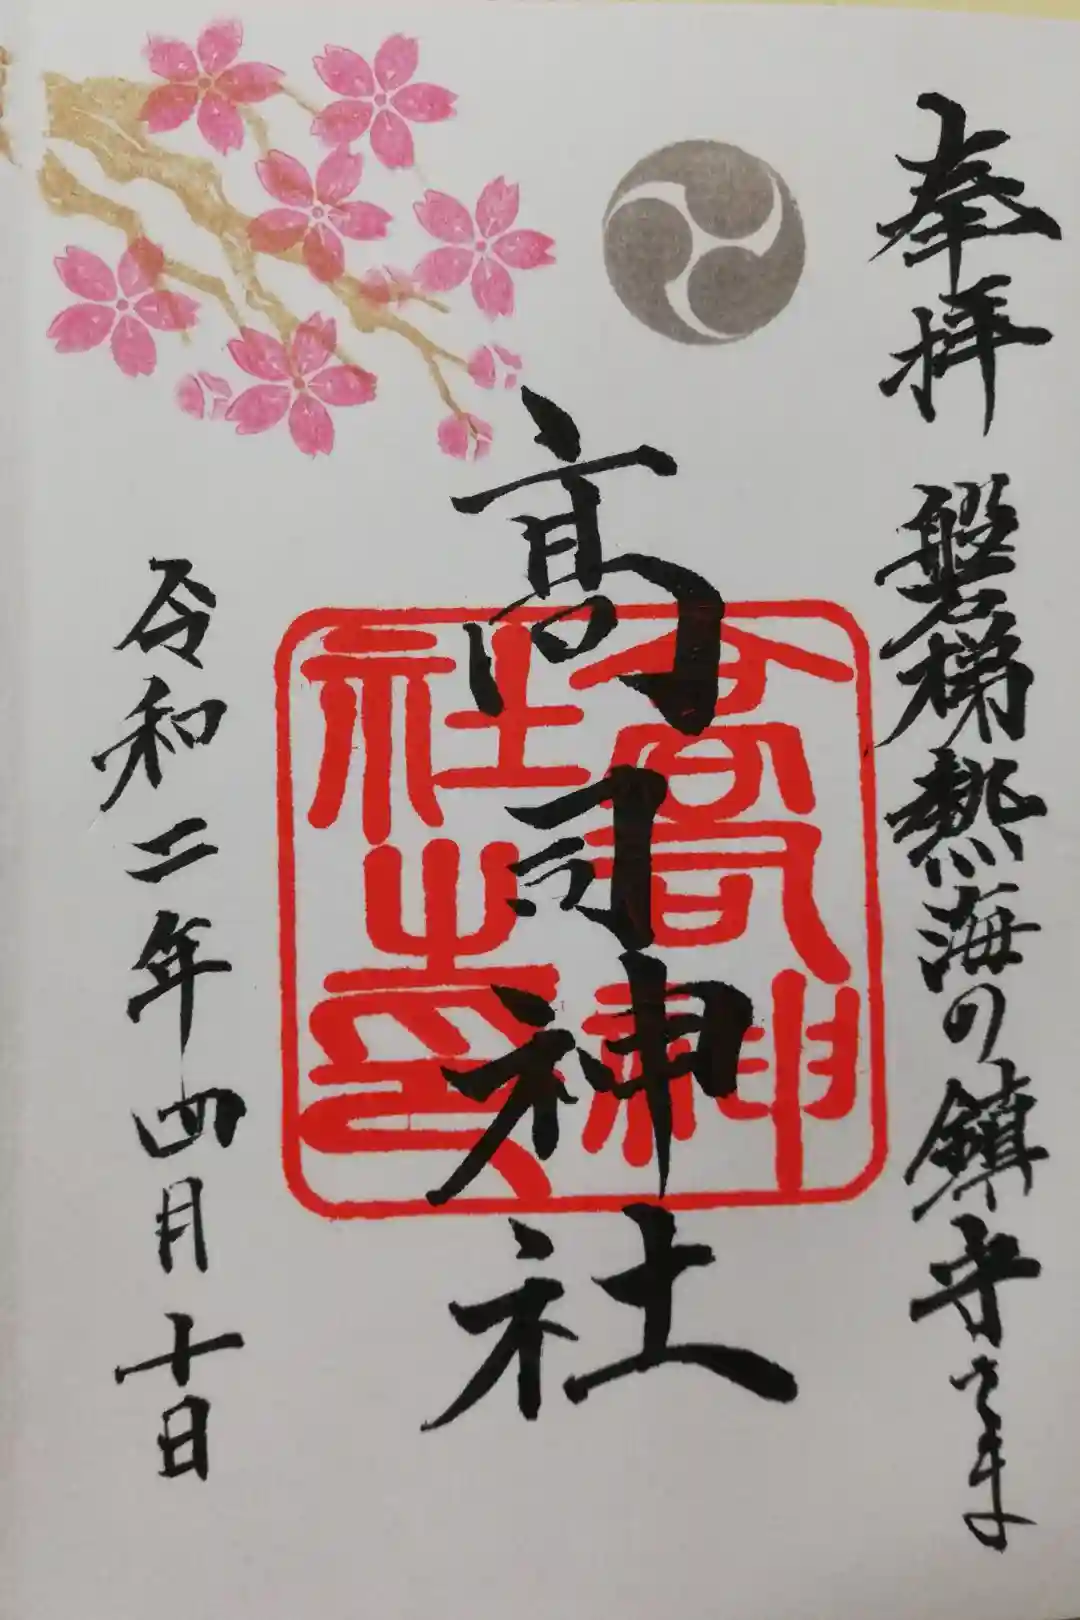 奉拝 磐梯熱海の鎮守さま
高司神社
高司神社之印
令和二年四月十日